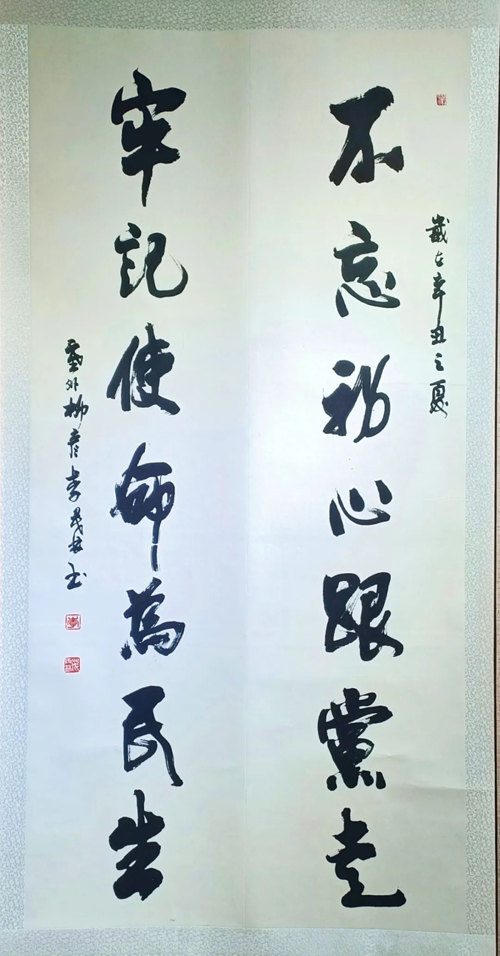 歲在辛丑之夏
不忘初心跟黨走
牢記使命為民生
塞外柳彥李茂林书
李